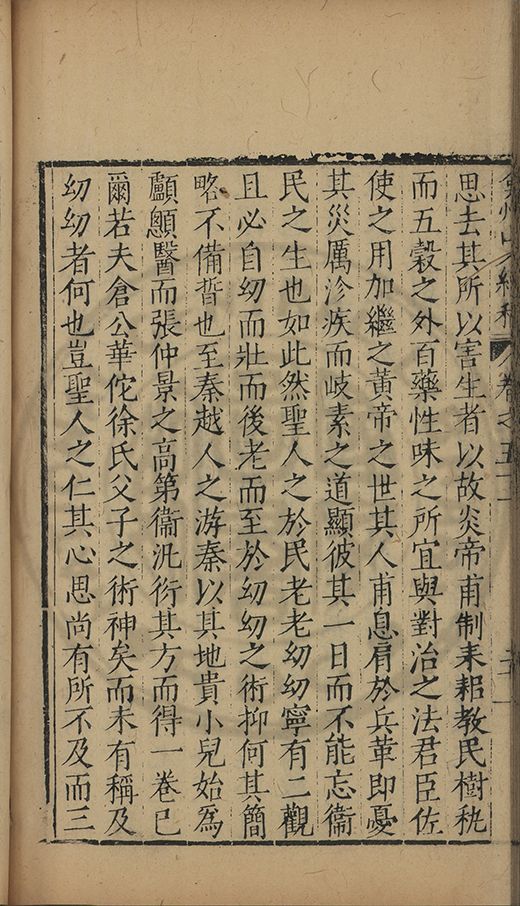 弇州山人續稿 卷之五十
思去其所以害生者以故炎帝甫制耒耜教民樹秇
而五穀之外百藥性味之所宜與對治之法君臣佐
使之用加繼之黃帝之世其人甫息肩於兵革即憂
其災厲沴疾而岐素之道顯彼其一日而不能忘衞
民之生也如此然聖人之於民老老㓜㓜寧有二觀
且必自㓜而壯而後老而至於㓜㓜之術抑何其簡
略不備晢也至秦越人之游秦以其地貴小兒始為
顱顖醫而張仲景之高第衞汎衍其方而得一卷已
爾若夫倉公華佗徐氏父子之術神矣而未有稱及
㓜㓜者何也豈聖人之仁其心思尚有所不及而三